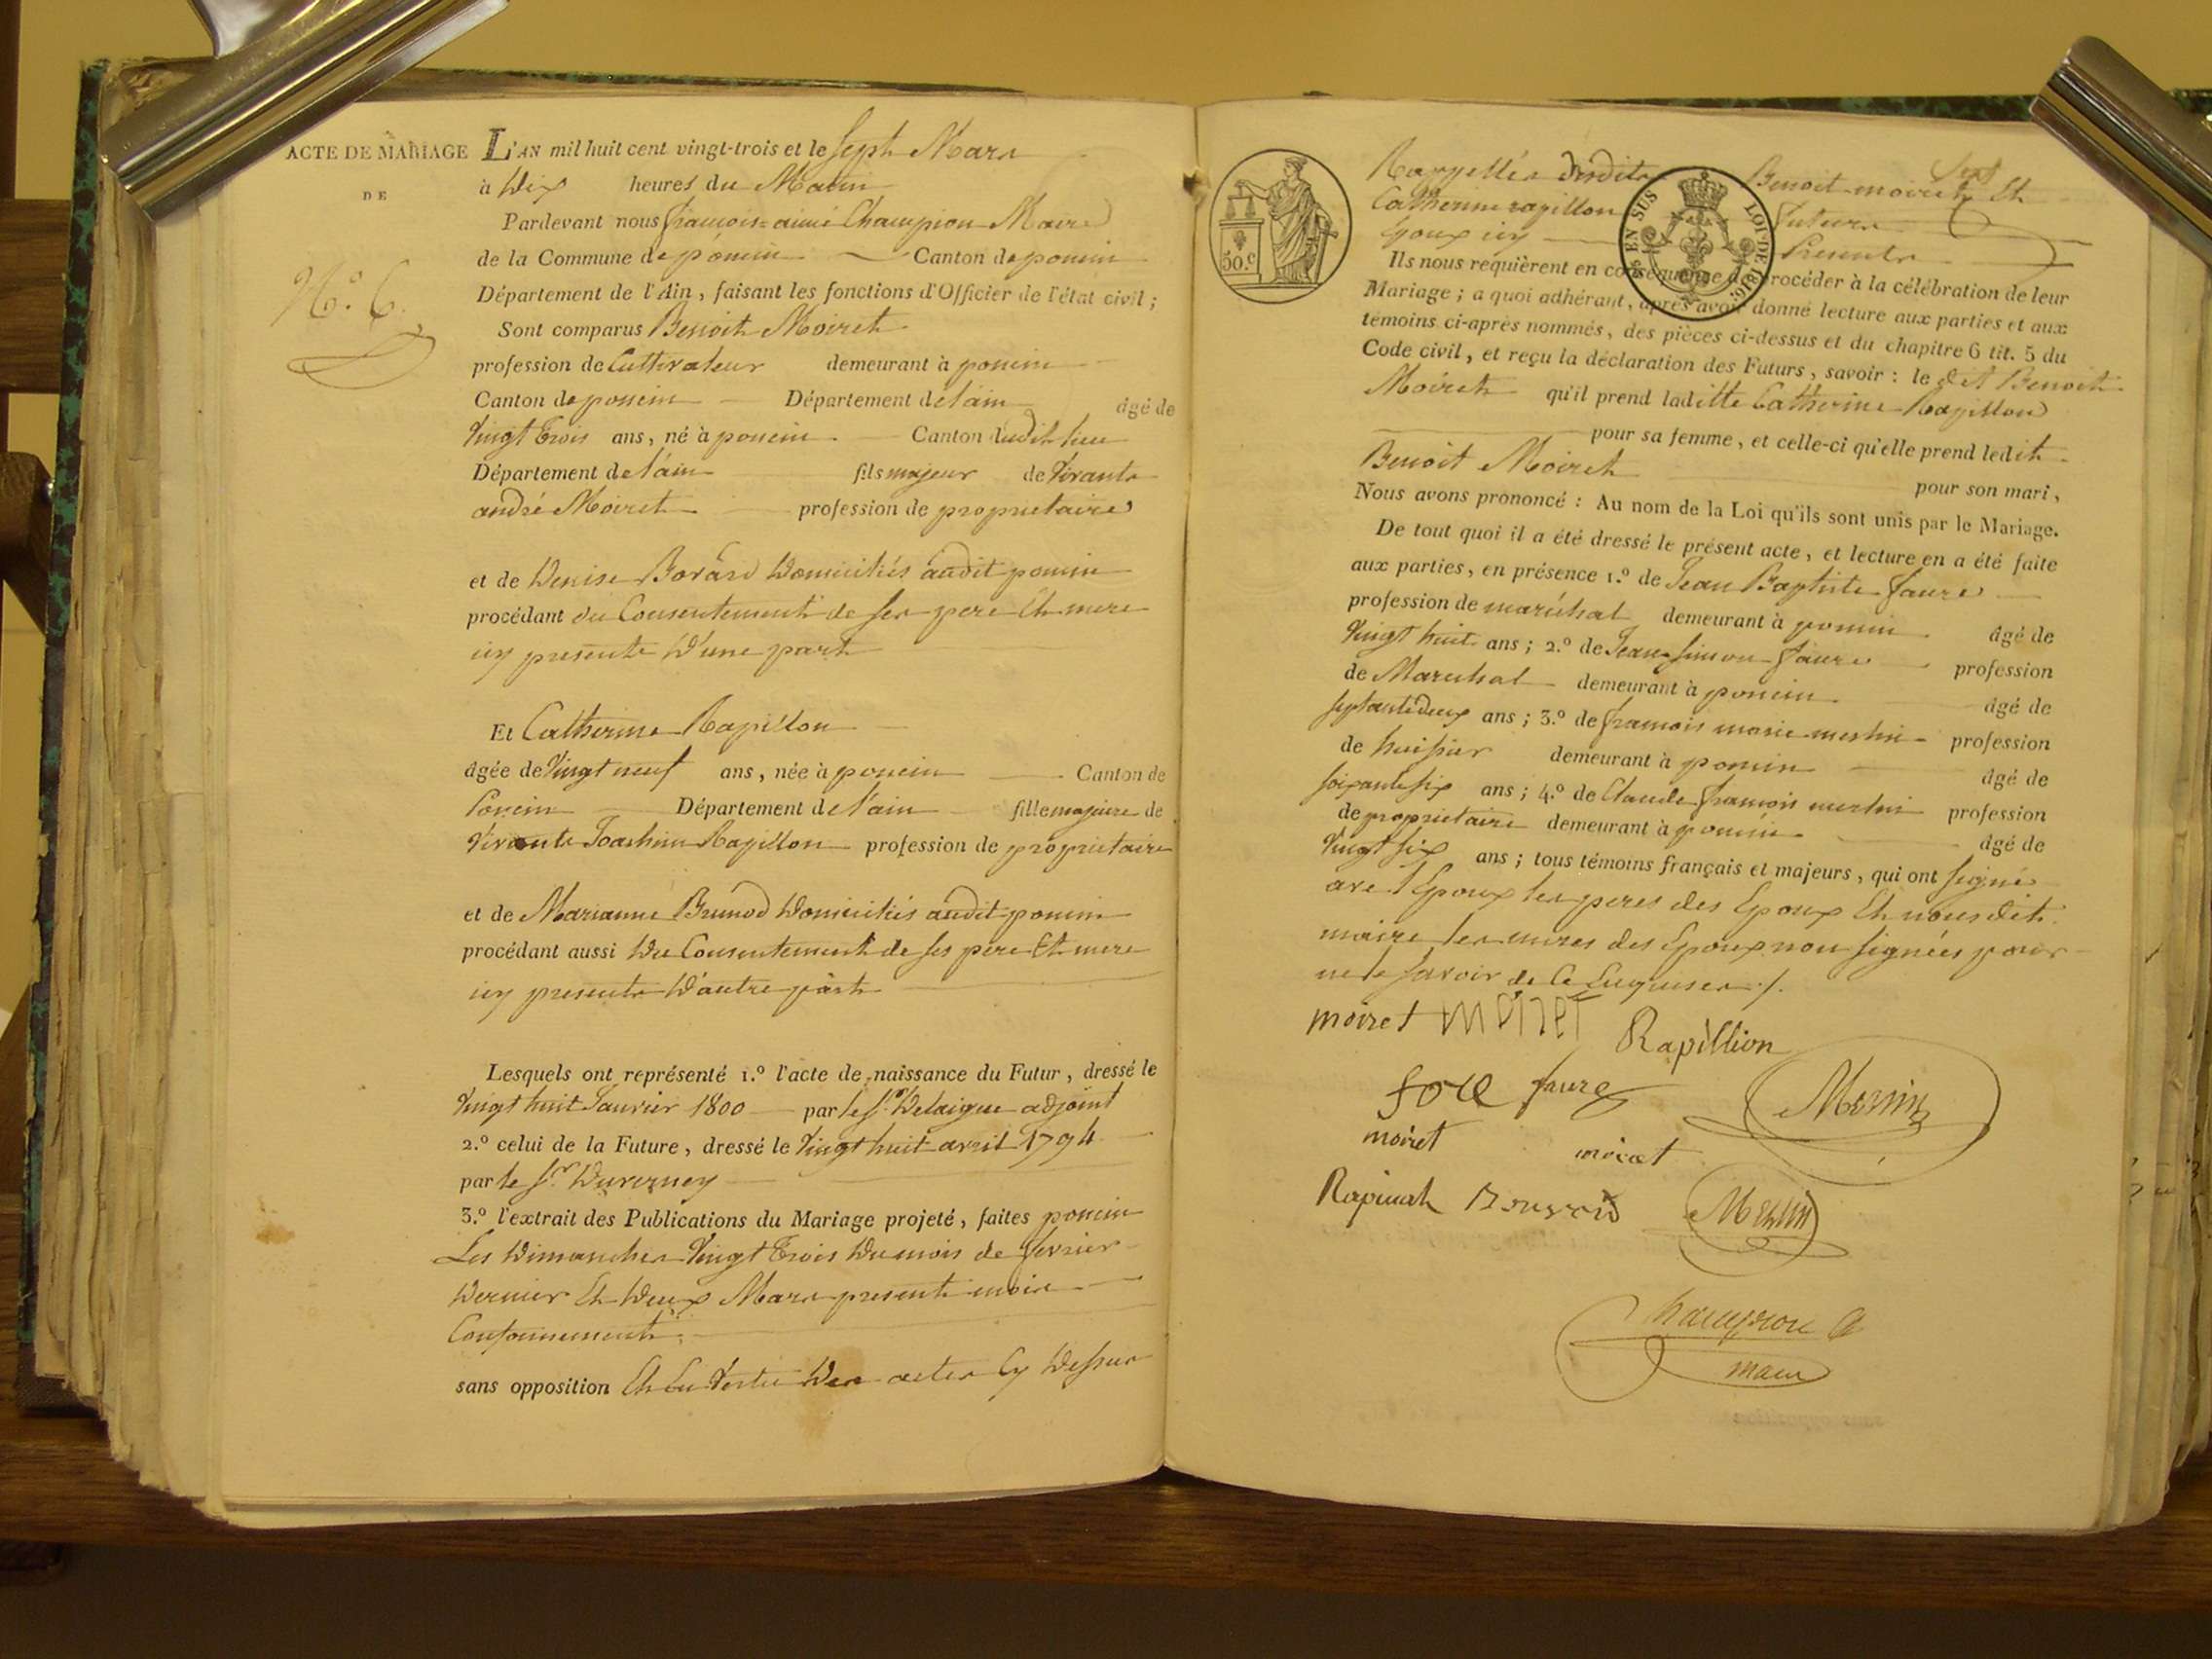 ACTE DE MARIAGE L'AN mil huit cent vingt-trois et le sept Mars
DE
à Dix heures du Matin
Pardevant nous françois-aimé Champion Maire
de la Commune de poncin Canton de poncin
N.º 6.
Département de l'Ain, faisant les fonctions d'Officier de l'état civil;
Sont comparus Benoit Moiret
profession de Cultivateur demeurant à poncin
Canton de poncin Département de l'ain âgé de
Vingt trois ans, né à poncin Canton dudit lieu
Département de l'ain fils majeur de Vivants
andré Moiret profession de proprietaire
et de Denise Borard Domiciliés audit poncin
procédant du Consentement de ses pere Et mere
icy presents D'une part
Et Catherine Rapillon
âgée de Vingt neuf ans, née à poncin Canton de
Poncin Département de l'ain fille majeure de
Vivants Joachim Rapillon profession de proprietaire
et de Marianne Brunod Domiciliés audit poncin
procédant aussi Du Consentement de ses pere Et mere
icy presents D'autre part
Lesquels ont représenté 1.º l'acte de naissance du Futur, dressé le
Vingt huit Janvier 1800 par le Sr. Delaigue adjoint
2.º celui de la Future, dressé le Vingt huit avril 1794
par le Sr. Duverney
3.º l'extrait des Publications du Mariage projeté, faites poncin
Les Dimanches Vingt Trois Du mois de fevrier
Dernier Et Deux Mars present mois
Consecutivement
sans opposition Et En Vertu Des actes Cy Dessus
50.c
EN SUS
LOI DE 1816.
Rappellés desdits Benoit moiret Et
Catherine rapillon futurs
Epoux icy Presents
Ils nous requièrent en conséquence de procéder à la célébration de leur
Mariage; a quoi adhérant, après avoir donné lecture aux parties et aux
témoins ci-après nommés, des pièces ci-dessus et du chapitre 6 tit. 5 du
Code civil, et reçu la déclaration des Futurs, savoir: le dit Benoit
Moiret qu'il prend laditte Catherine Rapillon
pour sa femme, et celle-ci qu'elle prend ledit
Benoit Moiret pour son mari,
Nous avons prononcé: Au nom de la Loi qu'ils sont unis par le Mariage.
De tout quoi il a été dressé le présent acte, et lecture en a été faite
aux parties, en présence 1.º de Jean Baptiste faure
profession de maréchal demeurant à poncin âgé de
Vingt huit ans; 2.º de Jean Simon faure profession
de Marechal demeurant à poncin âgé de
septante deux ans; 3.º de françois marie merlin profession
de huissier demeurant à poncin âgé de
soixante six ans; 4.º de Claude françois merlin profession
de proprietaire demeurant à poncin âgé de
Vingt six ans; tous témoins français et majeurs, qui ont signé
avec l'Epoux les peres des Epoux Et nous dit
maire les meres des Epoux non signées pour
ne le savoir de Ce Enquises ./.
moiret moiret Rapillion
faure Merlin
moiret
Merlin
Champion
maire